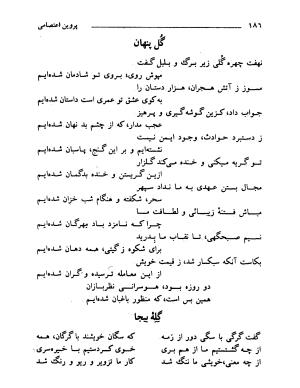 ۱۸۶ پروین اعتصامی
گل پنهان
نهفت چهره گلی زیر برگ و بلبل گفت
مپوش روی، بروی تو شادمان شده‌ایم
مسوز ز آتش هجران، هزار دستان را
به کوی عشق تو عمری است داستان شده‌ایم
جواب داد، کزین گوشه‌گیری و پرهیز
عجب مدار، که از چشم بد نهان شده‌ایم
ز دستبرد حوادث، وجود ایمن نیست
نشسته‌ایم و بر این گنج، پاسبان شده‌ایم
تو گریه میکنی و خنده میکند گلزار
ازین گریستن و خنده بدگمان شده‌ایم
مجال بستن عهدی به ما نداد سپهر
سحر، شکفته و هنگام شب خزان شده‌ایم
مباش فتنهٔ زیبائی و لطافت ما
چرا که نامزد باد مهرگان شده‌ایم
نسیم صبحگهی، تا نقاب ما بدرید
برای شکوه ز گیتی، همه دهان شده‌ایم
بکاست آنکه سبکسار شد، ز قیمت خویش
از این معامله ترسیده و گران شده‌ایم
دو روزه بود، هوسرانی نظربازان
همین بس است، که منظور باغبان شده‌ایم
گلهٔ بیجا
گفت گرگی با سگی دور از رمه که سگان خویشند با گرگان، همه
از چه گشتستیم ما از هم بری خوی کردستیم با خیره‌سری
از چه معنی، خویشی ما ننگ شد کار ما تزویر و ریو و رنگ شد